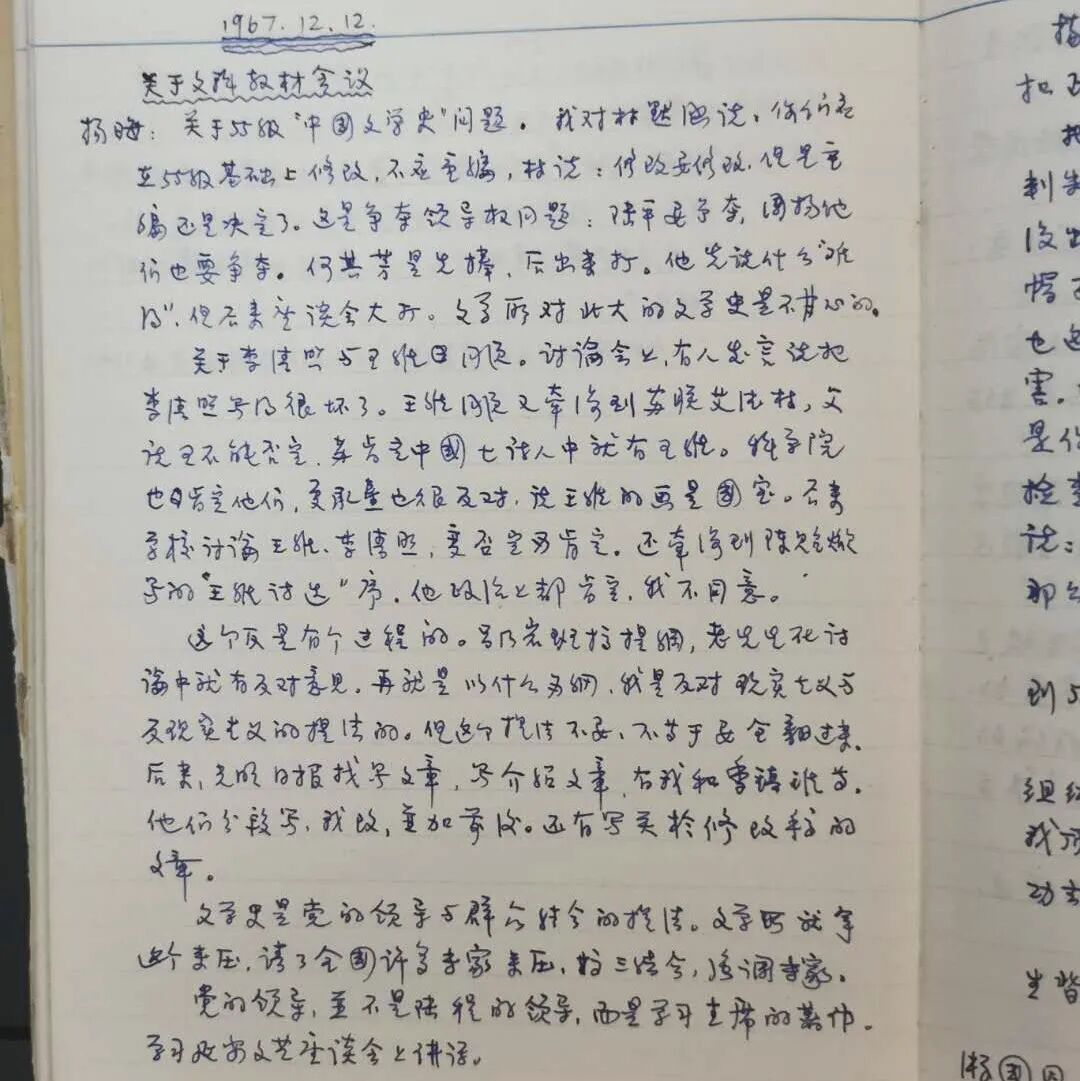 1967.12.12.
关于文科教材会议
杨晦：关于55级“中国文学史”问题。我对林默涵说，你们应
在55级基础上修改，不应重编，林说：修改是修改，但是主
编还是决定了。这是争夺领导权问题：陆平要争夺，周扬他
们也要争夺。何其芳是先捧，后出来打。他先说什么“难
得”，但后来座谈会大打。文学所对北大的文学史是不甘心的。
关于李清照与王维的问题。讨论会上，有人发言说把
李清照写得很坏了。王维问题又牵涉到苏联艾德林，艾
说王不能否定，并肯定中国七诗人中就有王维。科学院
也肯定他们，夏承焘也很反对，说王维的画是国宝。后来
学校讨论王维、李清照，变否定为肯定。还牵涉到陈贻焮
写的“王维诗选”序，他政治上都肯定，我不同意。
这个反是有个过程的。提纲，老先生在讨
论中就有反对意见。再就是以什么为纲，我是反对现实主义与
反现实主义的提法的。但这个提法不妥，不等于要全翻过来。
后来，光明日报找写文章，写介绍文章，有我和季镇淮等。
他们分段写，我改，重加前后。还有写关于修改稿的
文章。
文学史是党的领导与群众结合的提法。文学所就拿
这个来压，请了全国许多专家来压，搞三结合，强调专家。
党的领导，并不是陆程的领导，而是学习主席的著作。
学习延安文艺座谈会上讲话。
扣
把
制
没出
帽子
也这
害。
是什
检查
说：
那么
到5
组织
我
功
生皆
游国恩